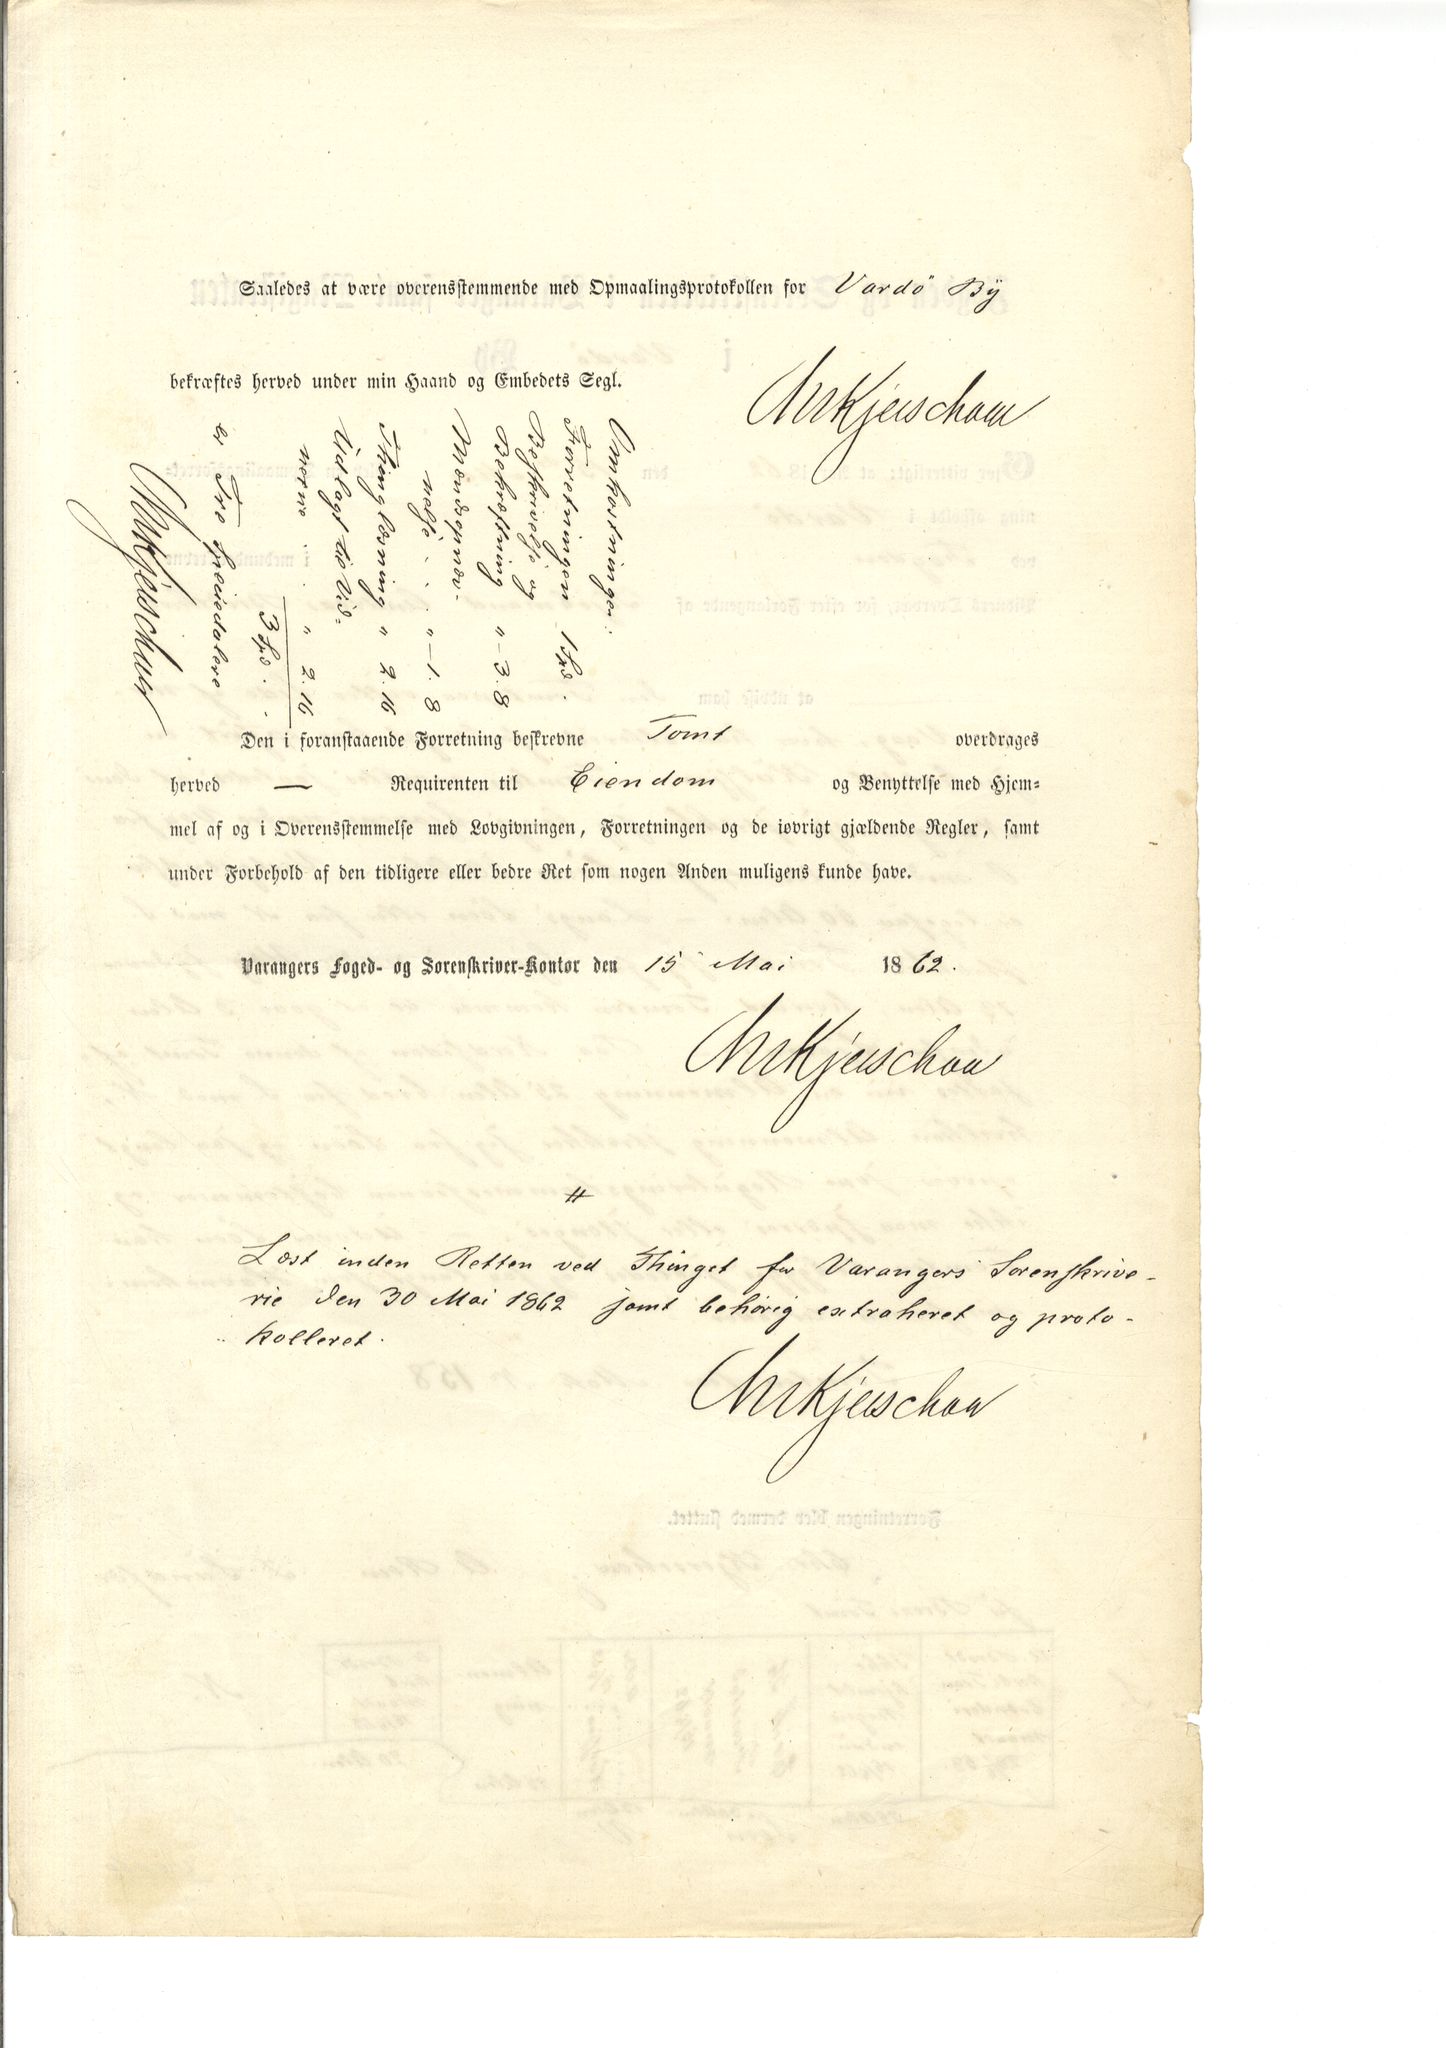 Saaledes at være overensstemmende med Opmaalingsprotokollen for Vardö By
bekræftes herved under min Haand og Embedets Segl.
Omkostninger:
Forretningen 1 Spd. -
Beskrivelse og
Bekræftning " - 3. 8
Mændsopnæv-
nelse . . " - 1. 8
Thinglæsning " 2. 16
Udlagt til Vid-
nerne . . " 2. 16
3 Spd. . -
er Tre Speciedalere
Den i foranstaaende Forretning beskrevne Tomt overdrages
herved — Requirenten til Eiendom og Benyttelse med Hjem-
mel af og i Overensstemmelse med Lovgivningen, Forretningen og de iøvrigt gjældende Regler, samt
under Forbehold af den tidligere eller bedre Ret som nogen Anden muligens kunde have.
Varangers Foged- og Sorenskriver-Kontor den 15 Mai 1862.
#
Læst inden Retten ved Thinget for Varangers Sorenskrive-
rie den 30 Mai 1862 samt behörig extraheret og proto-
kolleret.